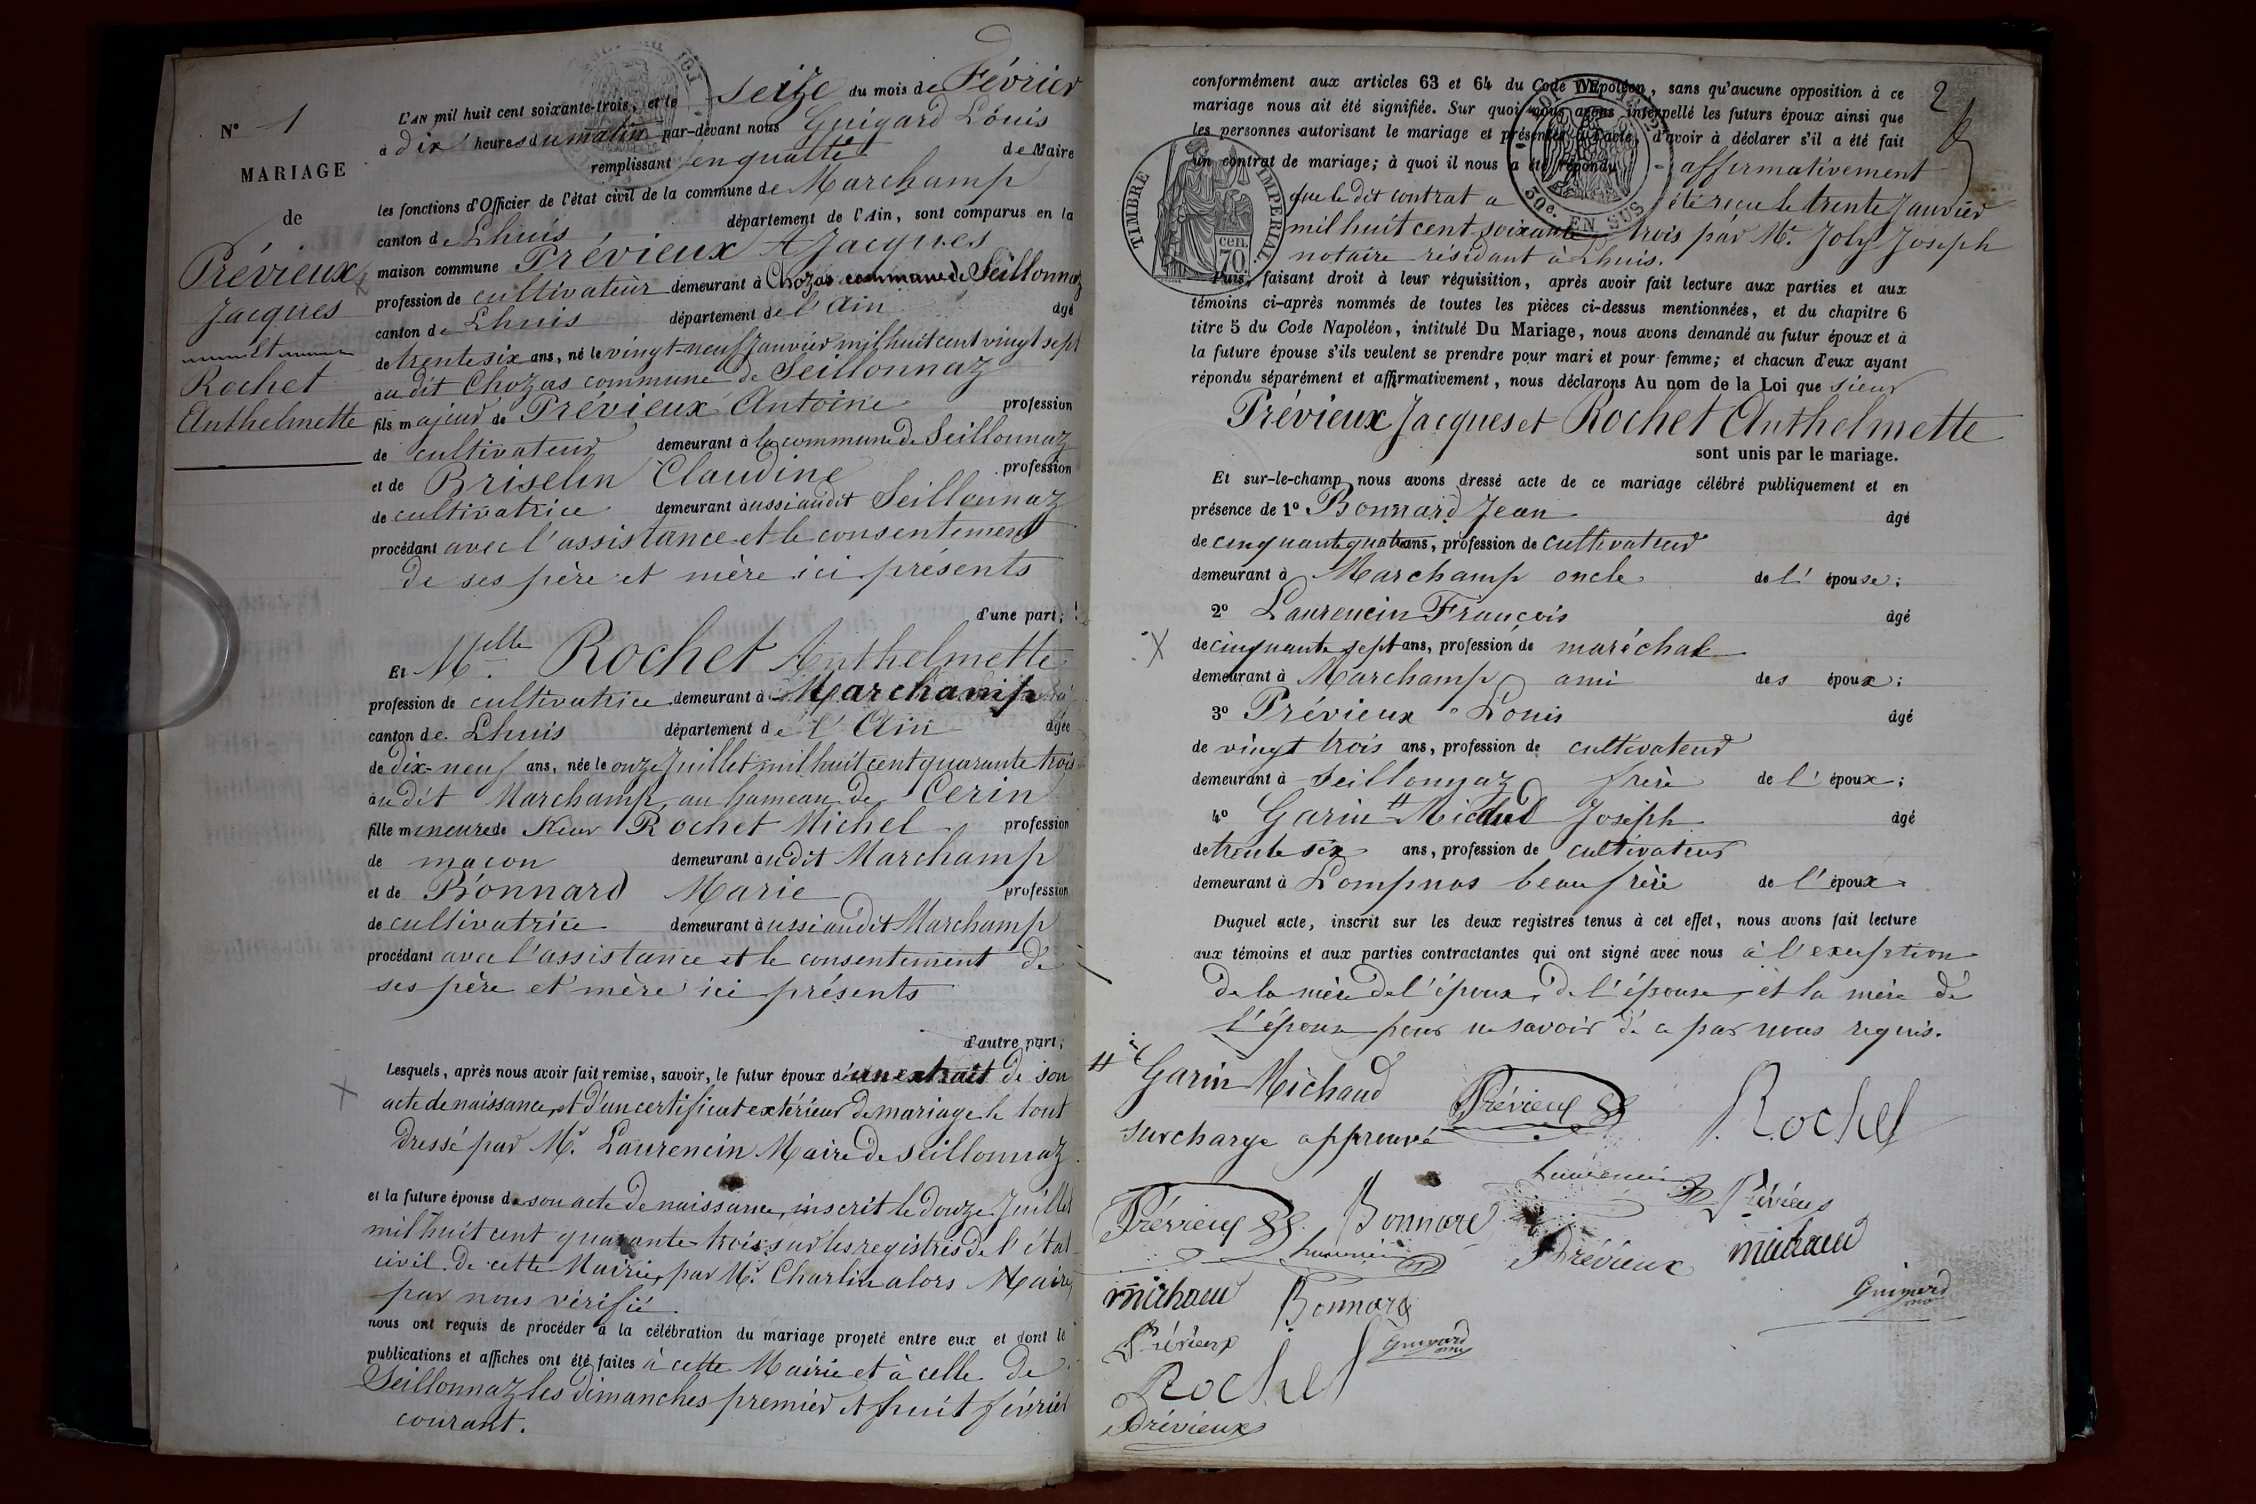 N° 1
MARIAGE
de
Prévieux
Jacques
et
Rochet
Anthelmette
L'AN mil huit cent soixante-trois, et le seize du mois de Février
à dix heures du matin par-devant nous Guigard Louis
remplissant en qualité de Maire
les fonctions d'Officier de l'état civil de la commune de Marchamp
canton de Lhuis département de l'Ain, sont comparus en la
maison commune Prévieux Jacques
profession de cultivateur demeurant à Chozas commune de Seillonnaz
canton de Lhuis département de l'Ain âgé
de trente six ans, né le vingt-neuf Janvier mil huit cent vingt sept
au dit Chozas commune de Seillonnaz
fils majeur de Prévieux Antoine profession
de cultivateur demeurant à la commune de Seillonnaz
et de Briselin Claudine profession
de cultivatrice demeurant aussi audit Seillonnaz
procédant avec l'assistance et le consentement
de ses père et mère ici présents
d'une part;
Et Melle Rochet Anthelmette
profession de cultivatrice demeurant à Marchamp
canton de Lhuis département de l'Ain âgée
de dix-neuf ans, née le onze Juillet mil huit cent quarante trois
au dit Marchamp au hameau de Cerin
fille mineure de sieur Rochet Michel profession
de maçon demeurant audit Marchamp
et de Bonnard Marie profession
de cultivatrice demeurant aussi audit Marchamp
procédant avec l'assistance et le consentement de
ses père et mère ici présents
d'autre part;
Lesquels, après nous avoir fait remise, savoir, le futur époux d'un extrait de son
acte de naissance, et d'un certificat extérieur de mariage le tout
dressé par Mr. Laurencin Maire de Seillonnaz
et la future épouse de son acte de naissance, inscrit le douze Juillet
mil huit cent quarante trois, sur les registres de l'état
civil de cette Mairie, par Mr. Charlin alors Maire,
par nous vérifié
nous ont requis de procéder à la célébration du mariage projeté entre eux et dont le
publications et affiches ont été faites à cette Mairie et à celle de
Seillonnaz les dimanches premier et huit février
courant.
2
conformément aux articles 63 et 64 du Code Napoléon, sans qu'aucune opposition à ce
mariage nous ait été signifiée. Sur quoi nous avons interpellé les futurs époux ainsi que
les personnes autorisant le mariage et présentes à l'acte, d'avoir à déclarer s'il a été fait
un contrat de mariage; à quoi il nous a été répondu affirmativement
que le dit contrat a été reçu le trente Janvier
mil huit cent soixante trois par Me. Joly Joseph
notaire résidant à Lhuis.
TIMBRE IMPERIAL
70 cen.
50c. EN SUS
Puis, faisant droit à leur réquisition, après avoir fait lecture aux parties et aux
témoins ci-après nommés de toutes les pièces ci-dessus mentionnées, et du chapitre 6
titre 5 du Code Napoléon, intitulé Du Mariage, nous avons demandé au futur époux et à
la future épouse s'ils veulent se prendre pour mari et pour femme; et chacun d'eux ayant
répondu séparément et affirmativement, nous déclarons Au nom de la Loi que sieur
Prévieux Jacques et Rochet Anthelmette
sont unis par le mariage.
Et sur-le-champ nous avons dressé acte de ce mariage célébré publiquement et en
présence de 1° Bonnard Jean âgé
de cinquante quatre ans, profession de cultivateur
demeurant à Marchamp oncle de l'épouse;
2° Laurencin François âgé
de cinquante sept ans, profession de maréchal
demeurant à Marchamp ami des époux;
3° Prévieux Louis âgé
de vingt trois ans, profession de cultivateur
demeurant à Seillonnaz frère de l'époux;
4° Garin # Michaud Joseph âgé
de trente six ans, profession de cultivateur
demeurant à Lompnas beau frère de l'époux
Duquel acte, inscrit sur les deux registres tenus à cet effet, nous avons fait lecture
aux témoins et aux parties contractantes qui ont signé avec nous à l'exception
de la mère de l'époux, de l'épouse, et la mère de
l'épouse pour ne savoir de ce par nous requis.
# Garin Michaud
surcharge approuvé
Prévieux
Rochet
Laurencin
Prévieux
Prévieux
Bonnard
Laurencin
Prévieux
michaud
michaud
Bonnard
Guigard
Prévieux
Guigard
Rochet
Prévieux